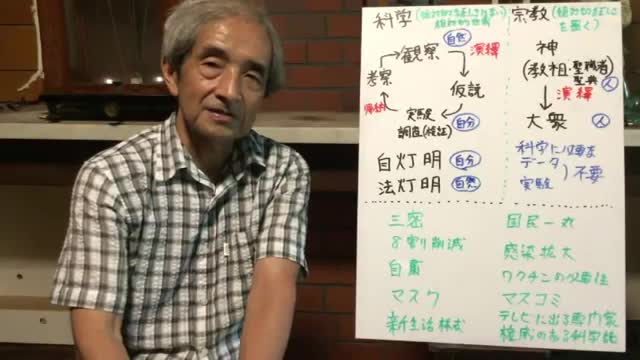 科学
宗教
を置く)
自然
観察
演繹
考察
仮説
帰納
実験
調査(検証)
自分
神
(教祖・聖職者
聖典)
人
演繹
大衆
人
自灯明
自分
法灯明
自然
科学に必要な
データ
実験
不要
三密
8割削減
自粛
マスク
新生活様式
国民一丸
感染拡大
ワクチンの必要性
マスコミ
テレビに出る専門家
権威のある科学誌